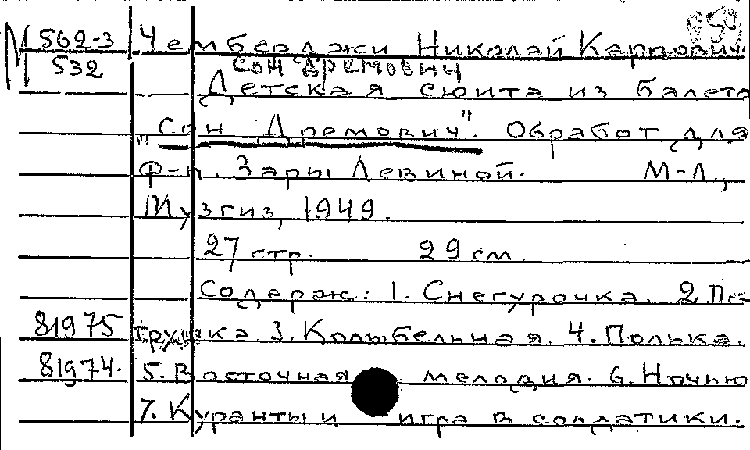 М 562-3 Чемберджи Николай Карпович
532 Сон Дремовны
Детская сюита из балета
"Сон Дремович". Обработ для
ф-п. Зары Левиной. М-Л.,
Музгиз, 1949.
27 стр. 29 см.
Содерж: 1. Снегурочка. 2 Пе-
81975 трушка 3. Колыбельная. 4. Полька.
81974. 5. Восточная мелодия. 6. Ночью
7. Куранты и игра в солдатики.